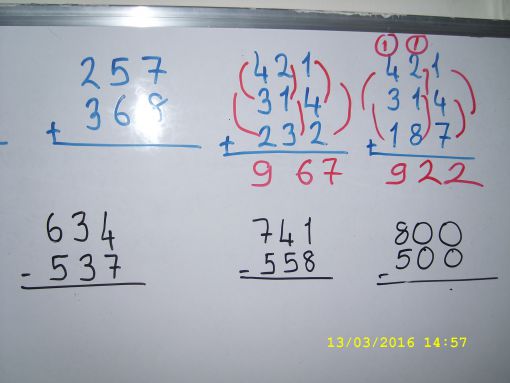 257
368
+
421
314
+ 232
967
1 1
421
314
+ 187
922
634
- 537
741
- 558
800
- 500
13/03/2016 14:57